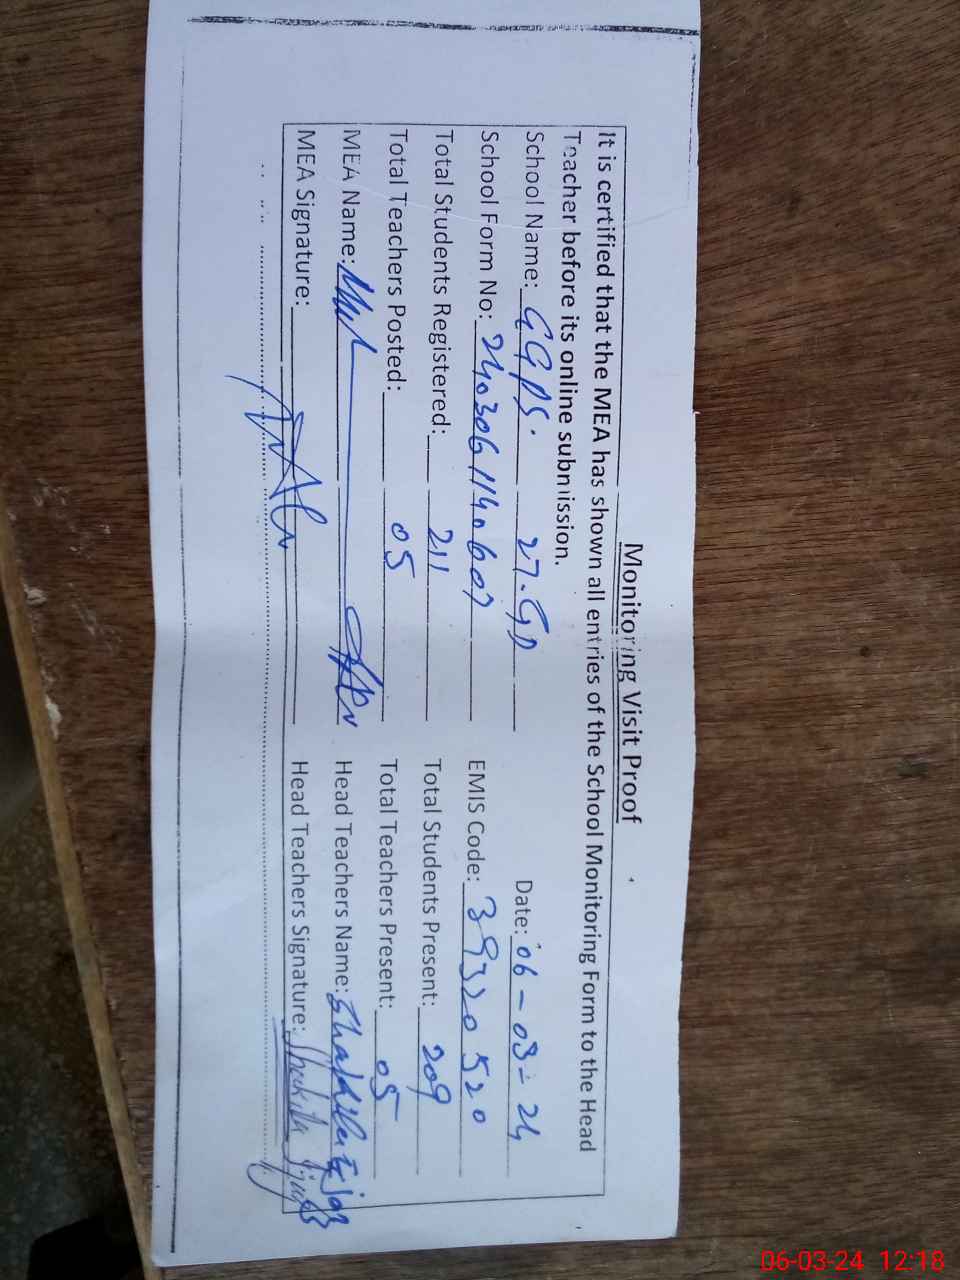 Monitoring Visit Proof
It is certified that the MEA has shown all entries of the School Monitoring Form to the Head
Teacher before its online submission.
School Name: GGPS. 27.GD Date: 06-03-24
School Form No: 2403061140607 EMIS Code: 39320520
Total Students Registered: 211 Total Students Present: 209
Total Teachers Posted: 05 Total Teachers Present: 05
MEA Name: Head Teachers Name: Shakila Ejaz
MEA Signature: Head Teachers Signature: Shakila Ejaz
06-03-24 12:18